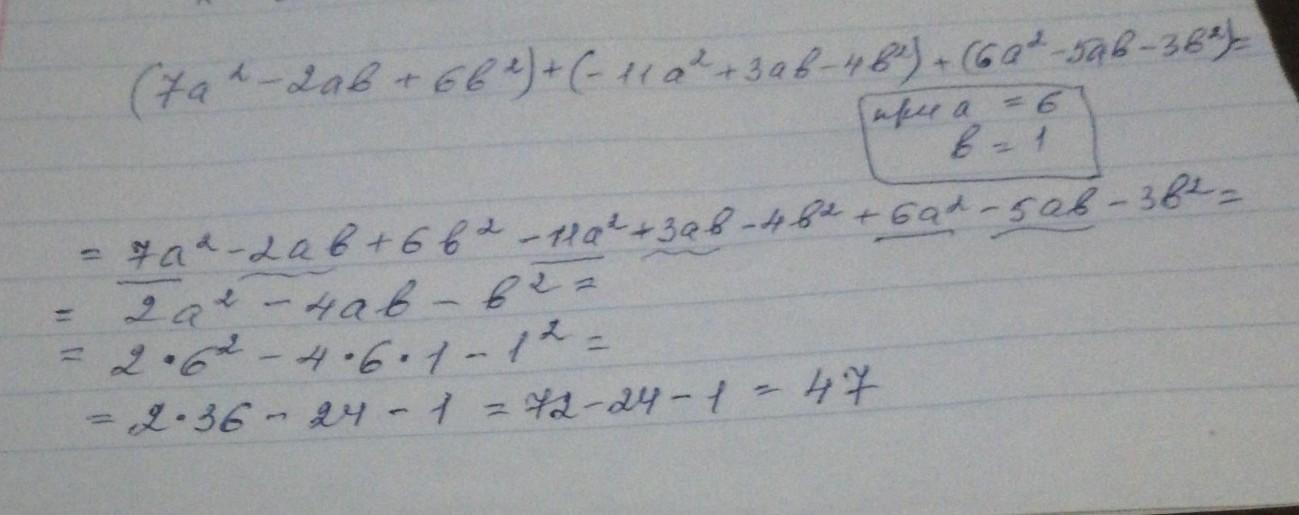 (7a² - 2ab + 6b²) + (-11a² + 3ab - 4b²) + (6a² - 5ab - 3b²) =
при a = 6
b = 1
= 7a² - 2ab + 6b² - 11a² + 3ab - 4b² + 6a² - 5ab - 3b² =
= 2a² - 4ab - b² =
= 2·6² - 4·6·1 - 1² =
= 2·36 - 24 - 1 = 72 - 24 - 1 = 47